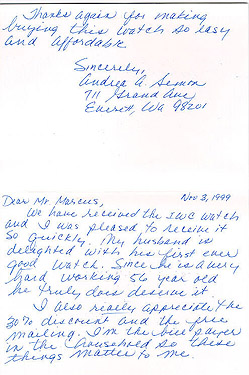 Thanks again for making
buying this watch so easy
and affordable
Sincerely,
Andrea A. Simon
711 Grand Ave
Everett, Wa 98201
Nov 3, 1999
Dear Mr. Marcus,
We have received the IWC watch
and I was pleased to receive it
so quickly. My husband is
delighted with his first ever
good watch. Since he is a very
hard working 56 year old
he truly does deserve it.
I also really appreciate the
30% discount and the free
mailing. I'm the bill payer
in the household so these
things matter to me.